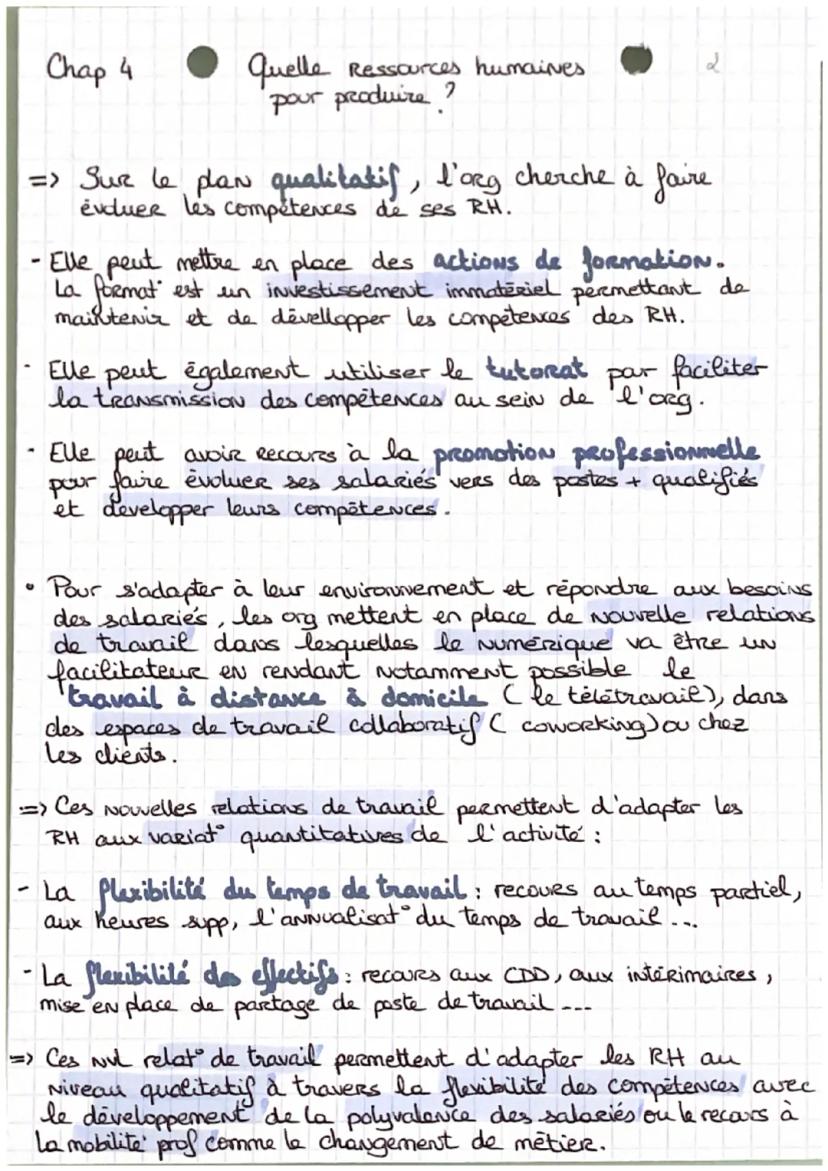 Chap 4 Quelle Ressources humaines 2
pour produire ?
=> Sur le plan qualitatif, l'org cherche à faire
évoluer les compétences de ses RH.
- Elle peut mettre en place des actions de formation.
La format° est un investissement immatériel permettant de
maintenir et de dévellopper les compétences des RH.
- Elle peut également utiliser le tutorat par faciliter
la transmission des compétences au sein de l'org.
- Elle peut avoir recours à la promotion professionnelle
pour faire évoluer ses salariés vers des postes + qualifiés
et développer leurs compétences.
• Pour s'adapter à leur environnement et répondre aux besoins
des salariés, les org mettent en place de nouvelle relations
de travail dans lesquelles le numérique va être un
facilitateur en rendant notamment possible le
travail à distance à domicile ( le télétravail), dans
des espaces de travail collaboratif ( coworking) ou chez
les clients.
=> Ces nouvelles relations de travail permettent d'adapter les
RH aux variat° quantitatives de l'activité :
- La flexibilité du temps de travail : recours au temps partiel,
aux heures supp, l'annualisat° du temps de travail ...
- La flexibilité des effectifs : recours aux CDD, aux intérimaires,
mise en place de partage de poste de travail ...
=> Ces nvl relat° de travail permettent d'adapter les RH au
niveau qualitatif à travers la flexibilité des compétences avec
le développement de la polyvalence des salariés ou le recours à
la mobilité prof comme le changement de métier.